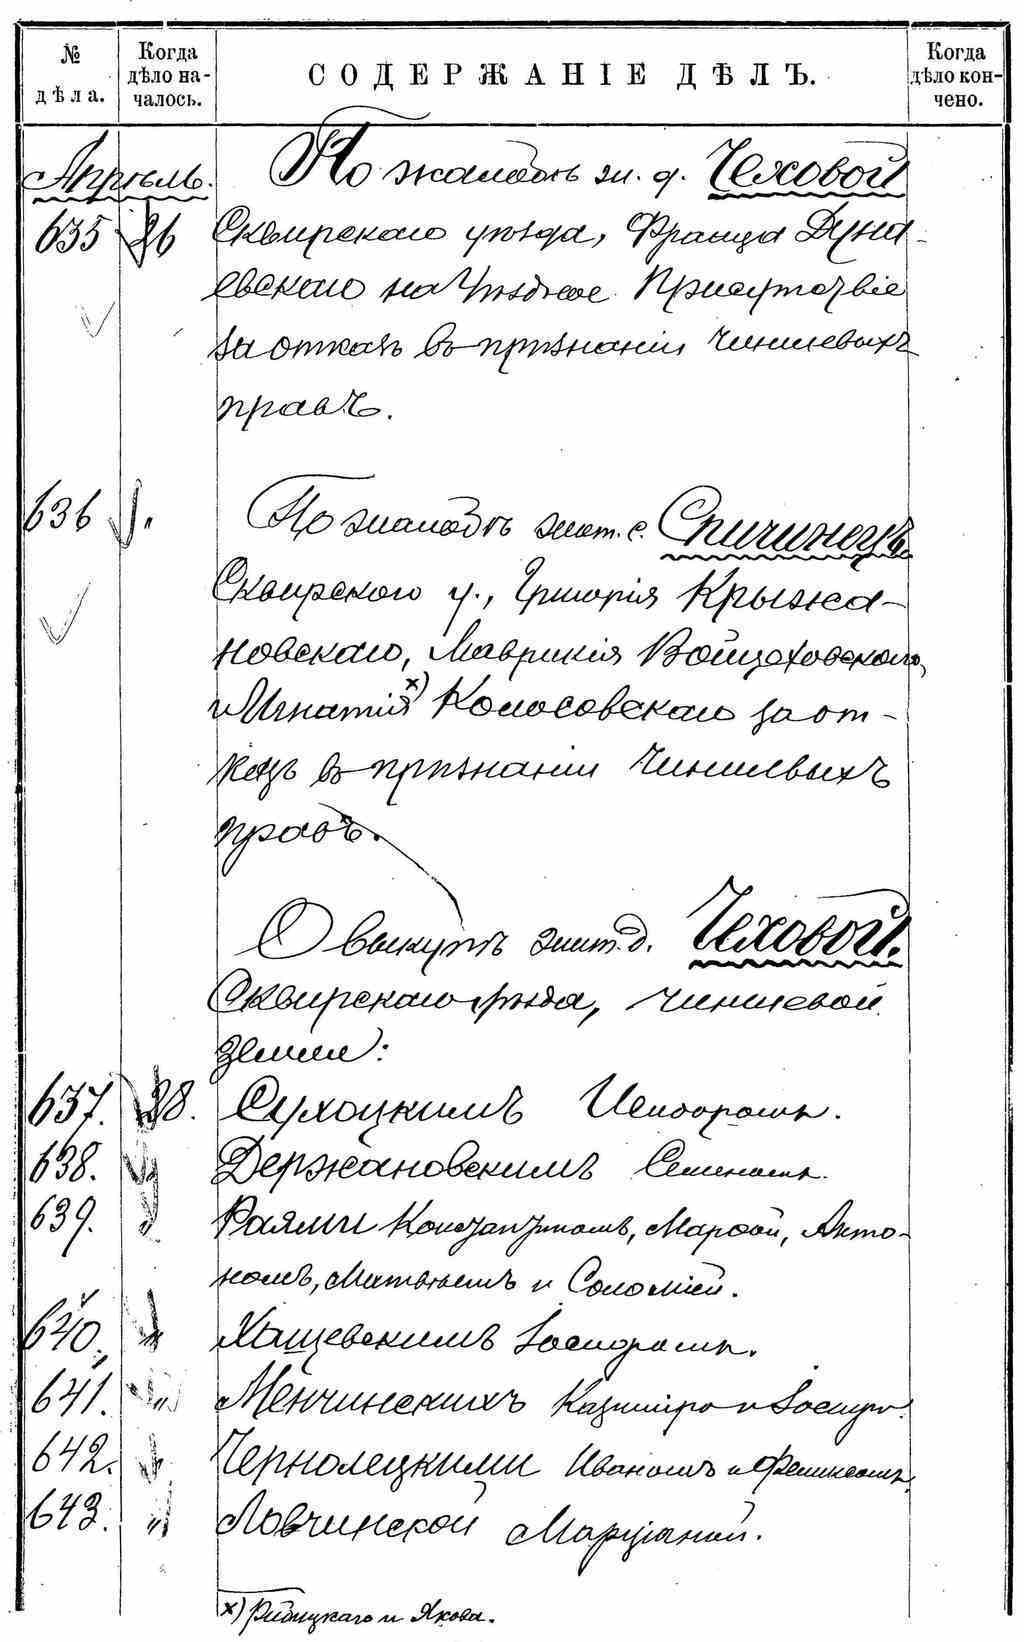 № дѣла. Когда дѣло началось. СОДЕРЖАНІЕ ДѢЛЪ. Когда дѣло кончено.
Апрѣль. По жалобѣ ж. д. Чеховой
635 26 Сквирскаго уѣзда, Франца Дуна-
евскаго на Уѣздное Присутствіе
за отказъ въ признаніи чиншевыхъ
правъ.
636 " По жалобѣ жит. с. Спичинецъ
Сквирского у., Григорія Крыжа-
новскаго, Маврикія Войцеховскаго,
и Игнатія х) Колосовскаго за от-
казъ въ признаніи чиншевыхъ
правъ.
О выкупѣ жит. д. Чеховой.
Сквирскаго уѣзда, чиншевой
земли:
637. 28. Сухоцкимъ
638. " Держановскимъ Семеномъ.
639. " Раями Константиномъ, Марѳой, Анто-
номъ, Матвѣемъ и Соломіей.
640. " Хащевскимъ Іосифомъ.
641. " Менчинскихъ Казиміра и Іосифа.
642. " Чернолецкими Иваномъ и Феликсомъ.
643. " Ловчинской Марцяной.
х) и Якова.